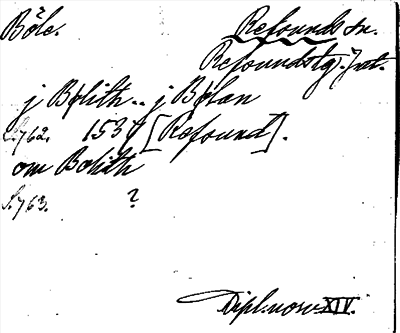 Böle. Refsunds sn.
Refsunds tg. Jtl.
j Bølith .. j Bølan
S. 762. 1537 [Refsund].
om Bølith
S. 763. ?
Dipl. norv. XIV.